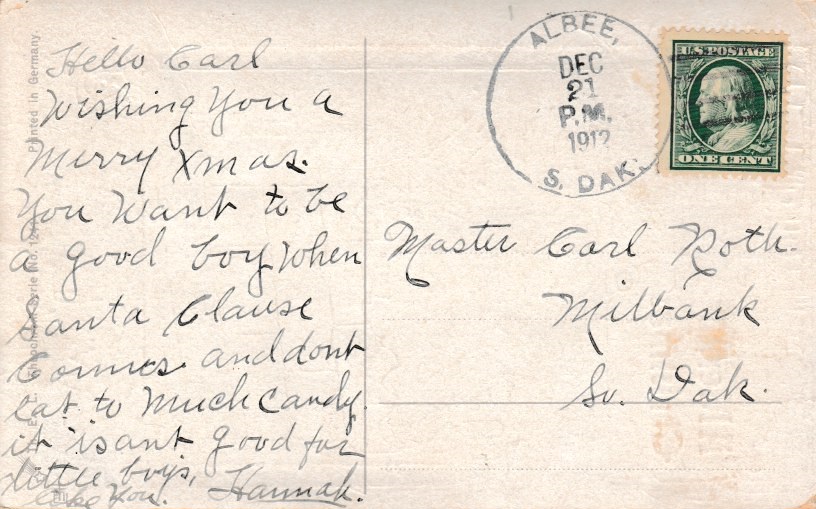 Hello Carl
Wishing you a
Merry Xmas.
You Want to be
a good boy When
Santa Clause
Comes and dont
Eat to Much Candy.
it isant good for
little boys,
like You. Hannah.
Printed in Germany
ALBEE,
DEC
21
P.M.
1912
S. DAK.
U.S. POSTAGE
ONE CENT
Master Carl Roth.
Milbank
So. Dak.